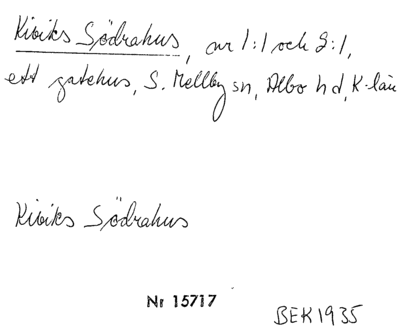 Kiviks Södrahus, nr 1:1 och 2:1,
ett gatehus, S. Mellby sn, Albo hd, K-län
Kiviks Södrahus
Nr 15717
BEK 1935